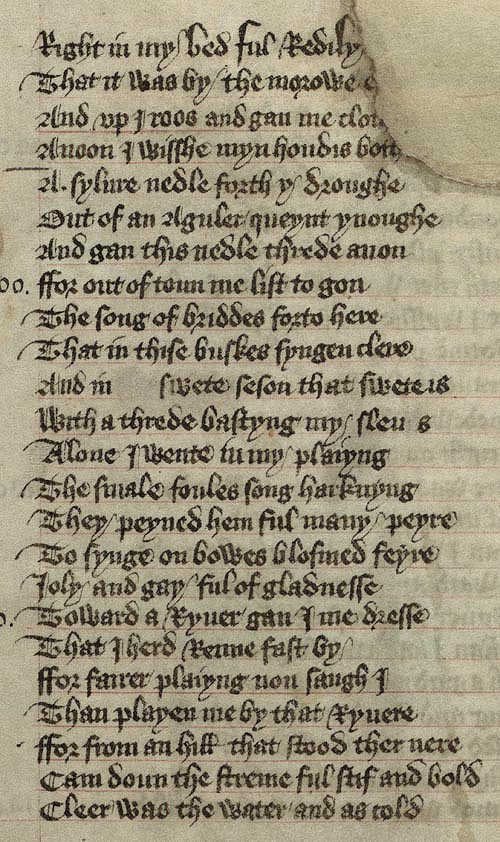 Right in my bed ful Redily
That it was by the morowe e
And vp I roos and gan me clo
Anoon I wisshe myn hondis bot
A sylure nedle forth y droughe
Out of an Aguler queynt ynoughe
And gan this nedle threde anon
00. ffor out of toun me list to gon
The song of briddes forto here
That in thise buskes syngen clere
And in swete seson that swete is
With a threde bastyng my sleu s
Alone I wente in my plaiyng
The smale foules song harknyng
They peyned hem ful many peyre
To synge on bowes blosmed feyre
Joly and gay ful of gladnesse
Toward a Ryuer gan I me dresse
That I herd Renne fast by
ffor fairer plaiyng non saugh I
Than playen me by that Ryuere
ffor from an hill that stood ther nere
Cam doun the streme ful stif and bold
Cleer was the water and as cold